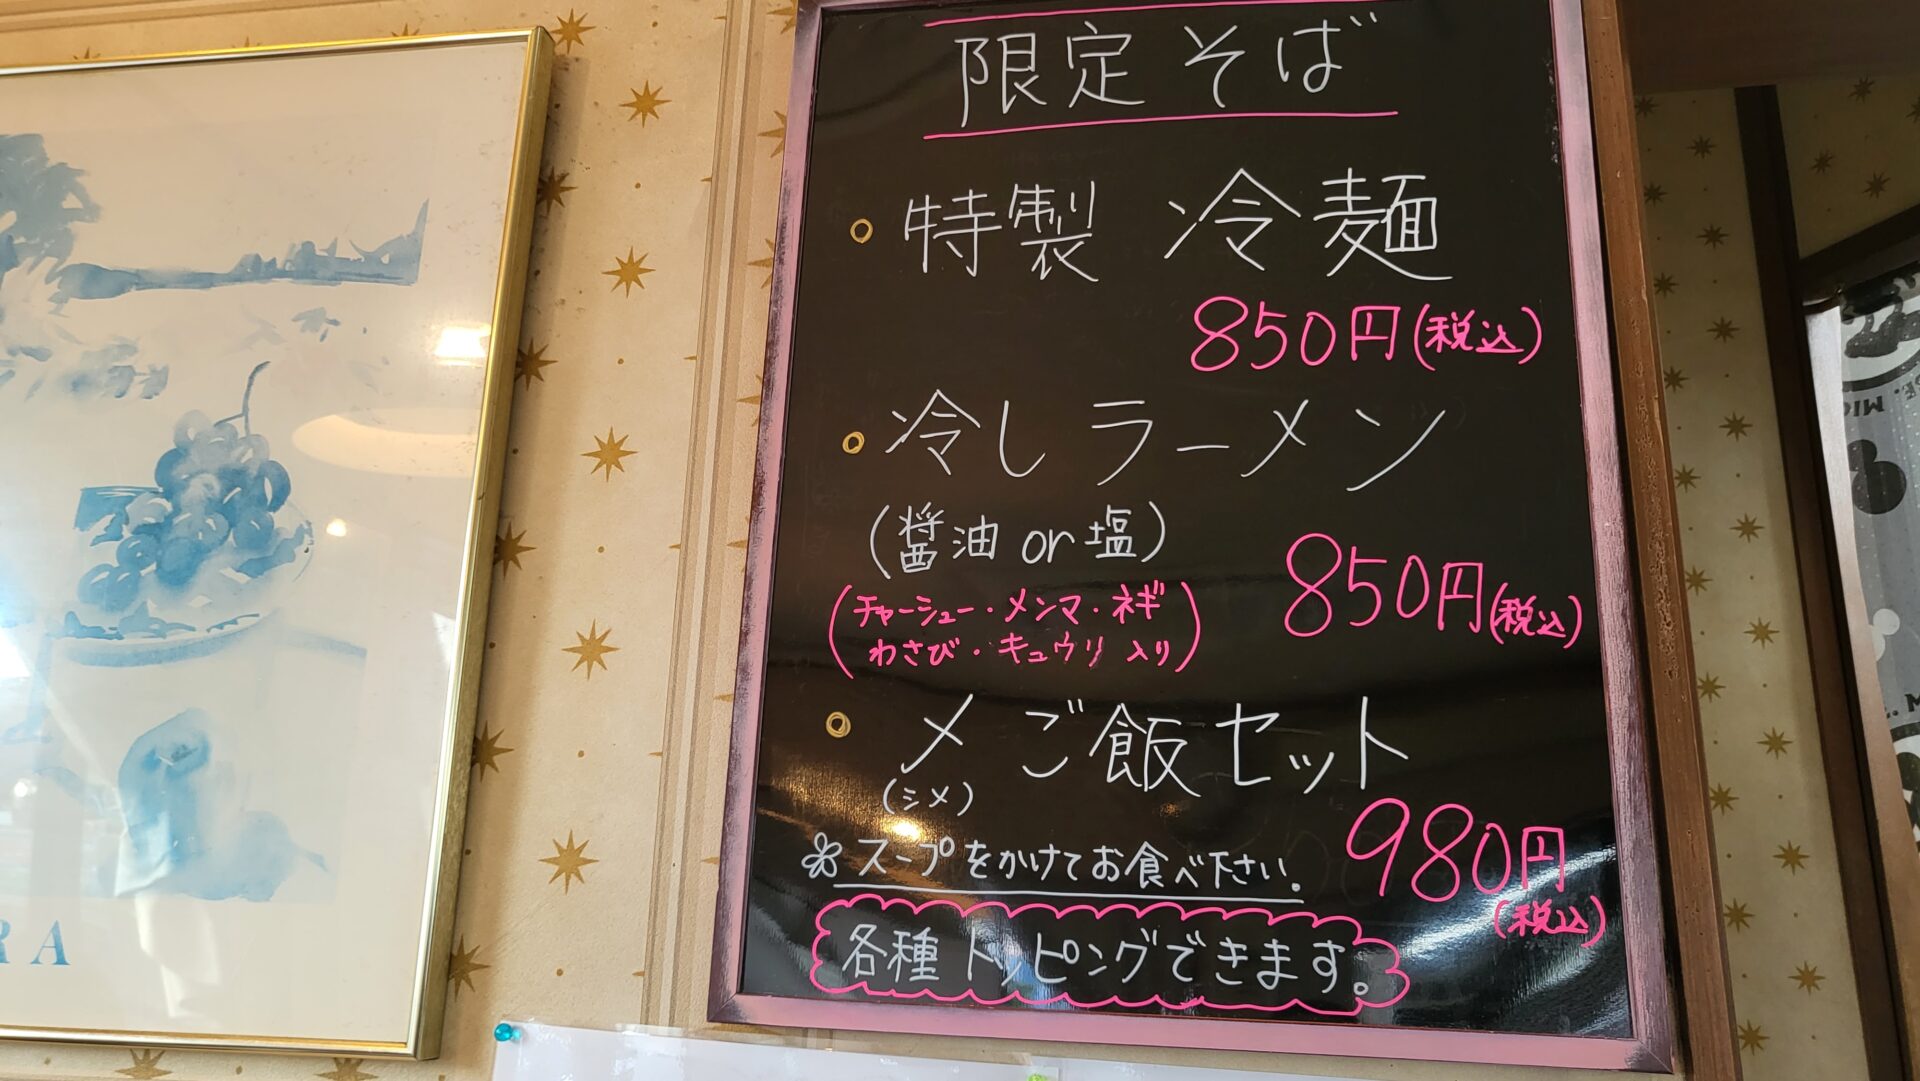 限定そば
特製 冷麺
850円(税込)
冷しラーメン
(醤油or塩)
850円(税込)
(チャーシュー・メンマ・ネギ
わさび・キュウリ 入り)
〆ご飯セット
(シメ)
980円
(税込)
スープをかけてお食べ下さい。
各種トッピングできます。
RA